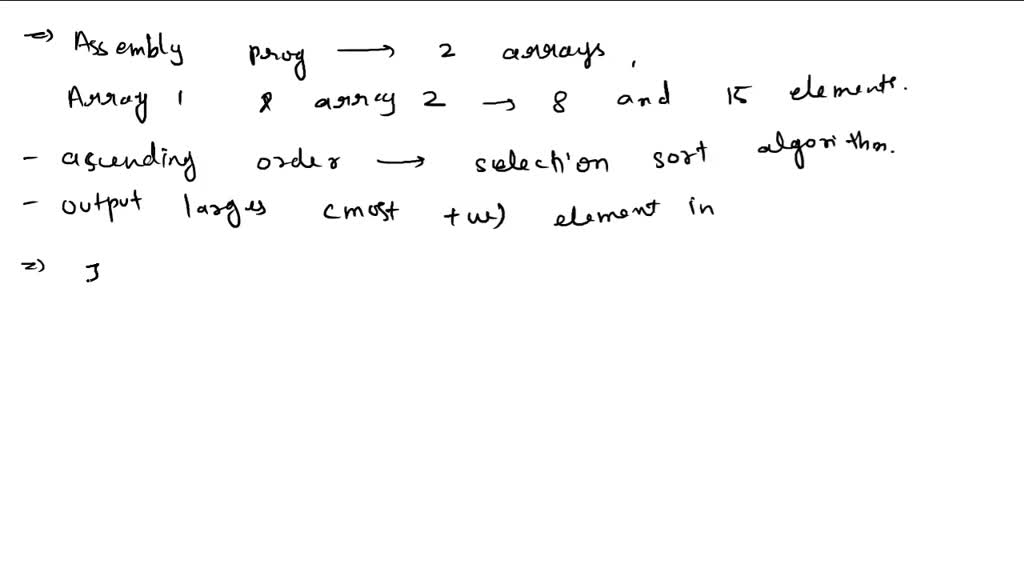 =) Assembly prog → 2 arrays,
Array 1 & array 2 → 8 and 15 elements.
- ascending order → selection sort algorithm.
- output larges (most +ve) element in
=) I